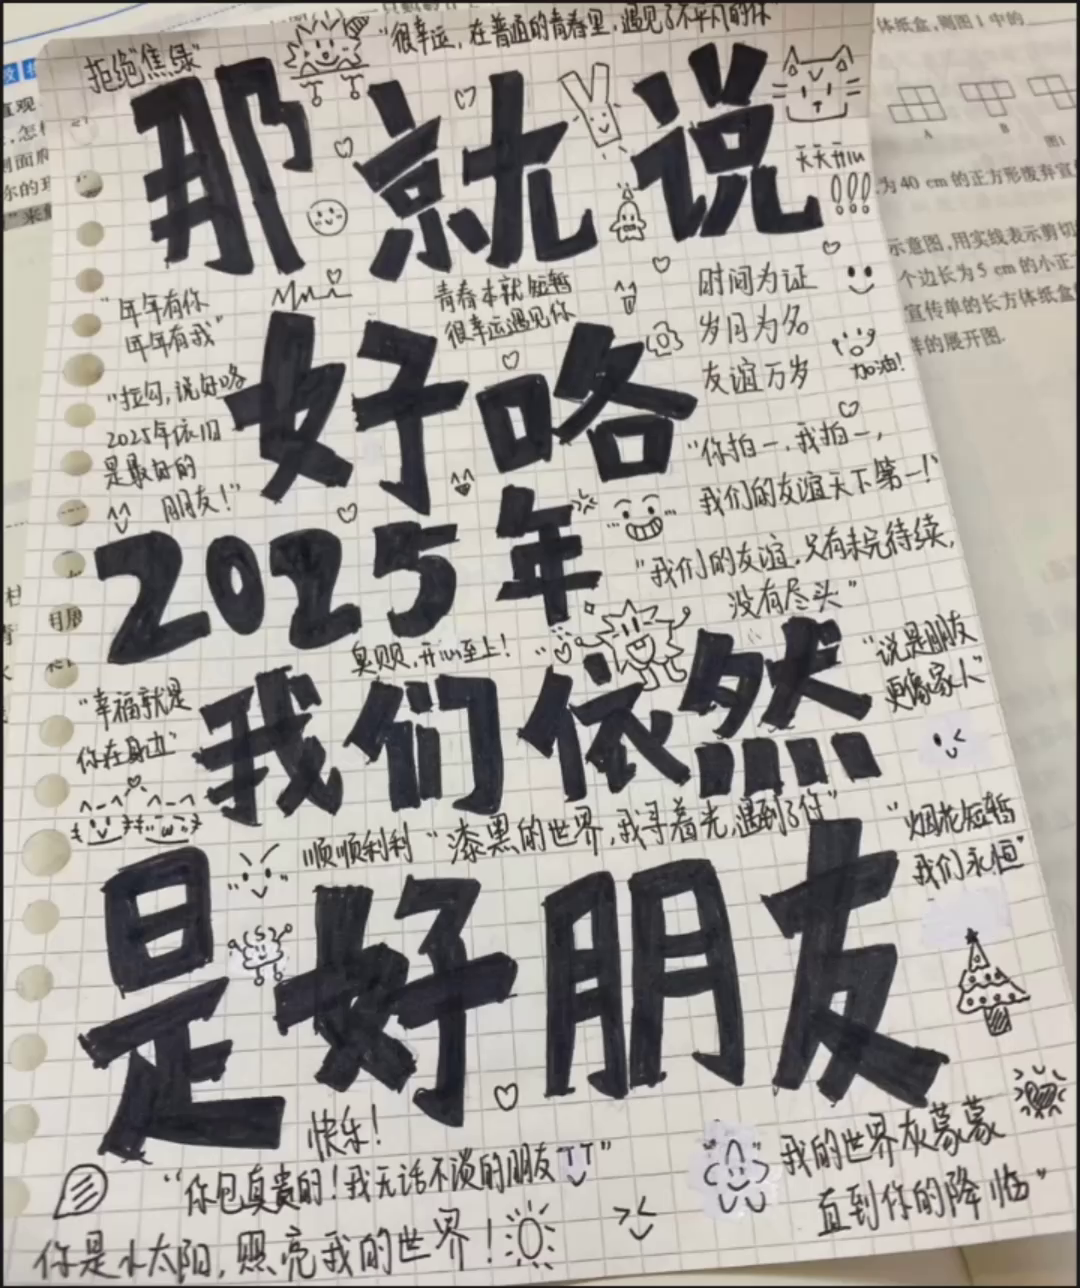 "很幸运,在普通的青春里,遇见了不平凡的你"
拒绝"焦绿"
那就说
天天开iu
!!!
"年年有你
年年有我"
青春本就短暂
很幸运遇见你
时间为证
岁月为名
友谊万岁
加油!
好咯
"拉勾,说好咯
2025年依旧
是最好的
朋友!"
"你拍一,我拍一,
我们的友谊天下第一!"
2025年
"我们的友谊,只有未完待续,
没有尽头"
臭贝贝,开iu至上!
"说是朋友
更像家人"
我们依然
"幸福就是
你在身边"
顺顺利利
"漆黑的世界,我寻着光,遇到了你"
"烟花短暂
我们永恒"
是好朋友
快乐!
"你包真贵的!我无话不谈的朋友"
我的世界灰蒙蒙
直到你的降临"
你是小太阳,照亮我的世界!
体纸盒,则图1中的
A
B
图1
为40 cm的正方形废弃宣
示意图,用实线表示剪切
个边长为5 cm的小正
宣传单的长方体纸盒
样的展开图.
直观